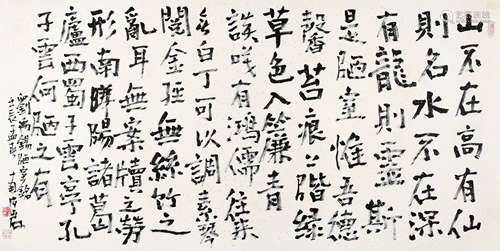 山不在高有仙
則名水不在深
有龍則靈斯
是陋室惟吾德
馨苔痕上階緑
草色入簾青
談咲有鴻儒往来
無白丁可以調素琴
閱金經無絲竹之
亂耳無案牘之勞
形南陽諸葛
廬西蜀子雲亭孔
子雲何陋之有
劉禹錫陋室銘